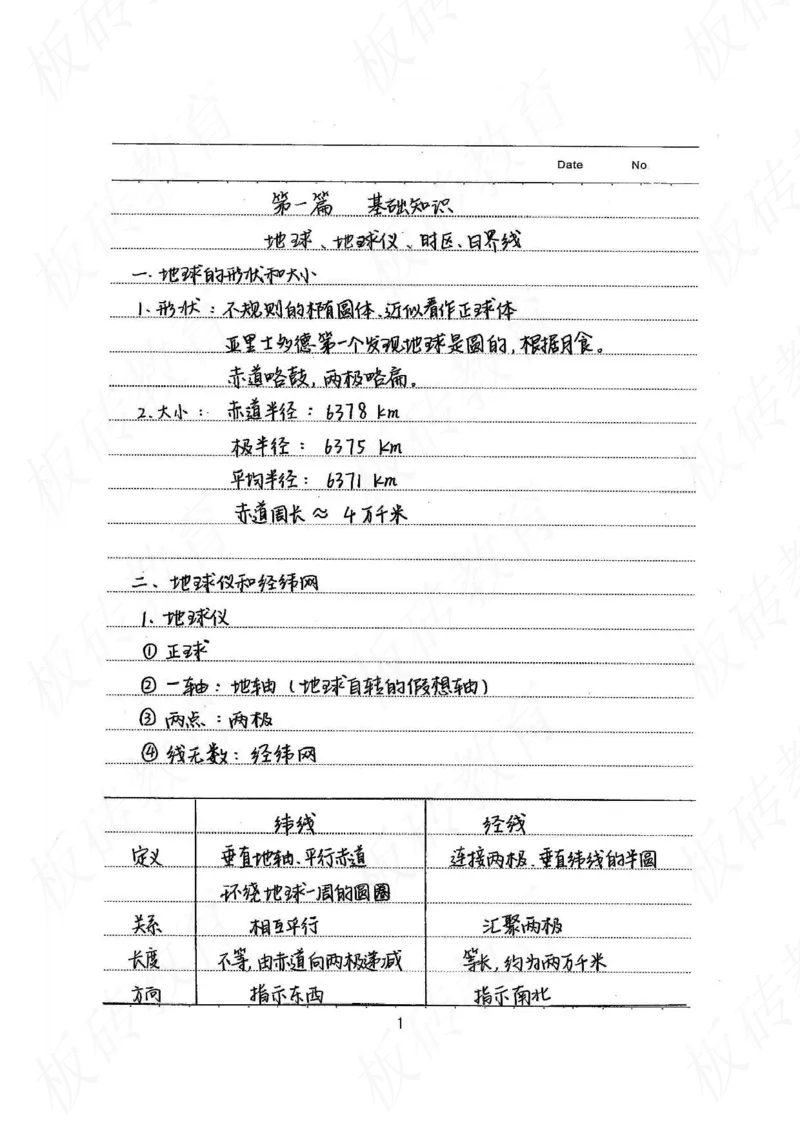 Date No
第一篇 基础知识
地球、地球仪、时区、日界线
一.地球的形状和大小
1.形状：不规则的椭圆体、近似看作正球体
亚里士多德第一个发现地球是圆的,根据月食。
赤道略鼓,两极略扁。
2.大小：赤道半径：6378 km
极半径：6375 km
平均半径：6371 km
赤道周长≈4万千米
二、地球仪和经纬网
1.地球仪
①正球
②一轴：地轴（地球自转的假想轴）
③两点：两极
④线无数：经纬网
纬线 经线
定义 垂直地轴、平行赤道 连接两极、垂直纬线的半圆
环绕地球一周的圆圈
关系 相互平行 汇聚两极
长度 不等,由赤道向两极递减 等长,约为两万千米
方向 指示东西 指示南北
1
板砖教育